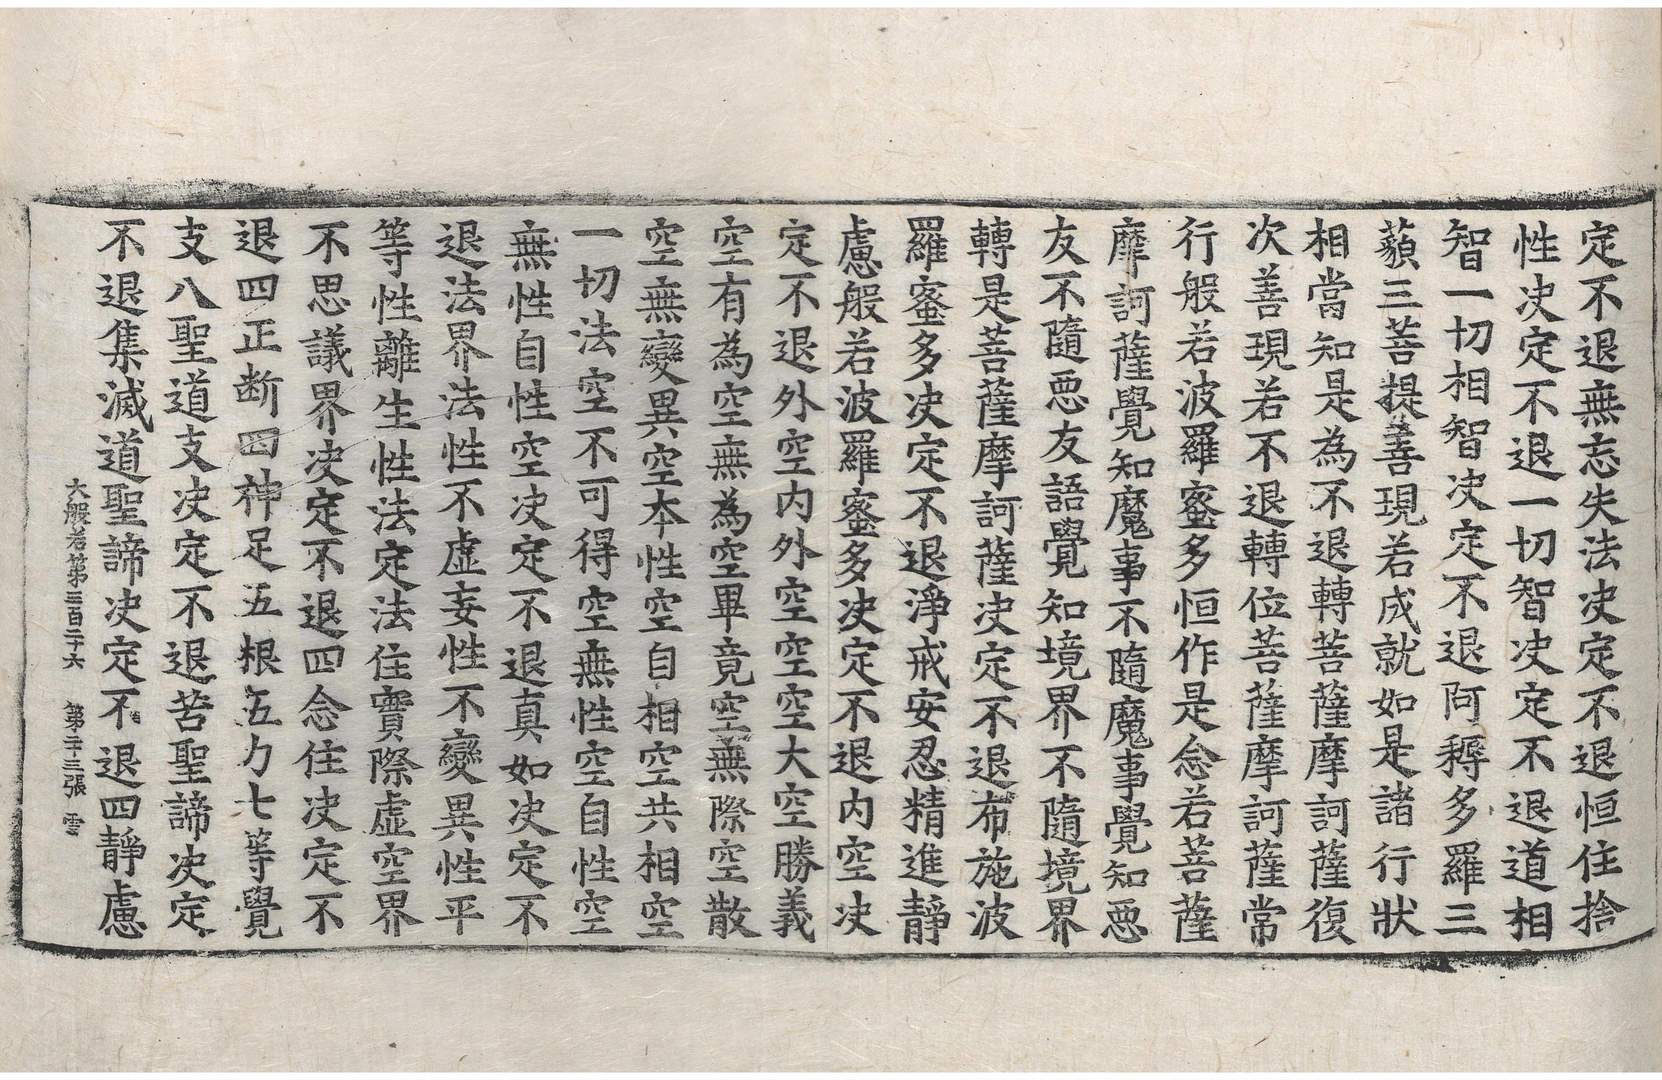 定不退無忘失法决定不退恒住捨
性决定不退一切智决定不退道相
智一切相智决定不退阿耨多羅三
藐三菩提善現若成就如是諸行狀
相當知是為不退轉菩薩摩訶薩復
次善現若不退轉位菩薩摩訶薩常
行般若波羅蜜多恒作是念若菩薩
摩訶薩覺知魔事不隨魔事覺知惡
友不隨惡友語覺知境界不隨境界
轉是菩薩摩訶薩决定不退布施波
羅蜜多决定不退淨戒安忍精進靜
慮般若波羅蜜多决定不退内空决
定不退外空内外空空空大空勝義
空有為空無為空畢竟空無際空散
空無變異空本性空自相空共相空
一切法空不可得空無性空自性空
無性自性空决定不退真如决定不
退法界法性不虛妄性不變異性平
等性離生性法定法住實際虛空界
不思議界决定不退四念住决定不
退四正断四神足五根五力七等覺
支八聖道支决定不退苦聖諦决定
大般若第三百二十六 第二十三張 雲
不退集滅道聖諦决定不退四靜慮